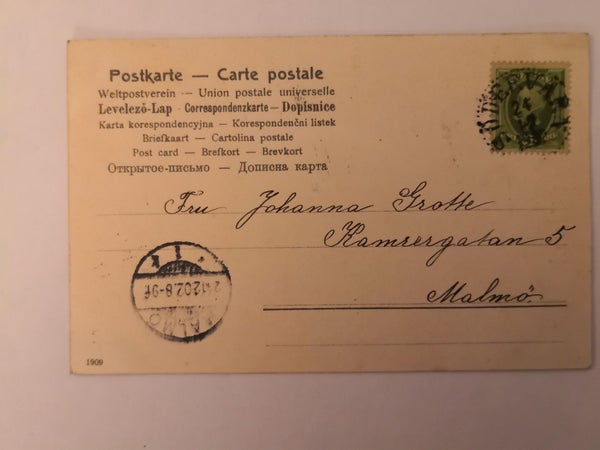 Postkarte — Carte postale
Weltpostverein — Union postale universelle
Levelező-Lap - Correspondenzkarte — Dopisnice
Karta korespondencyjna — Korespondenční listek
Briefkaart — Cartolina postale
Post card — Brefkort — Brevkort
Открытое-письмо — Дописна карта
Fru Johanna Grotte
Kamrergatan 5
Malmö.
24 12 02. 8-9 F
MALMÖ
1909